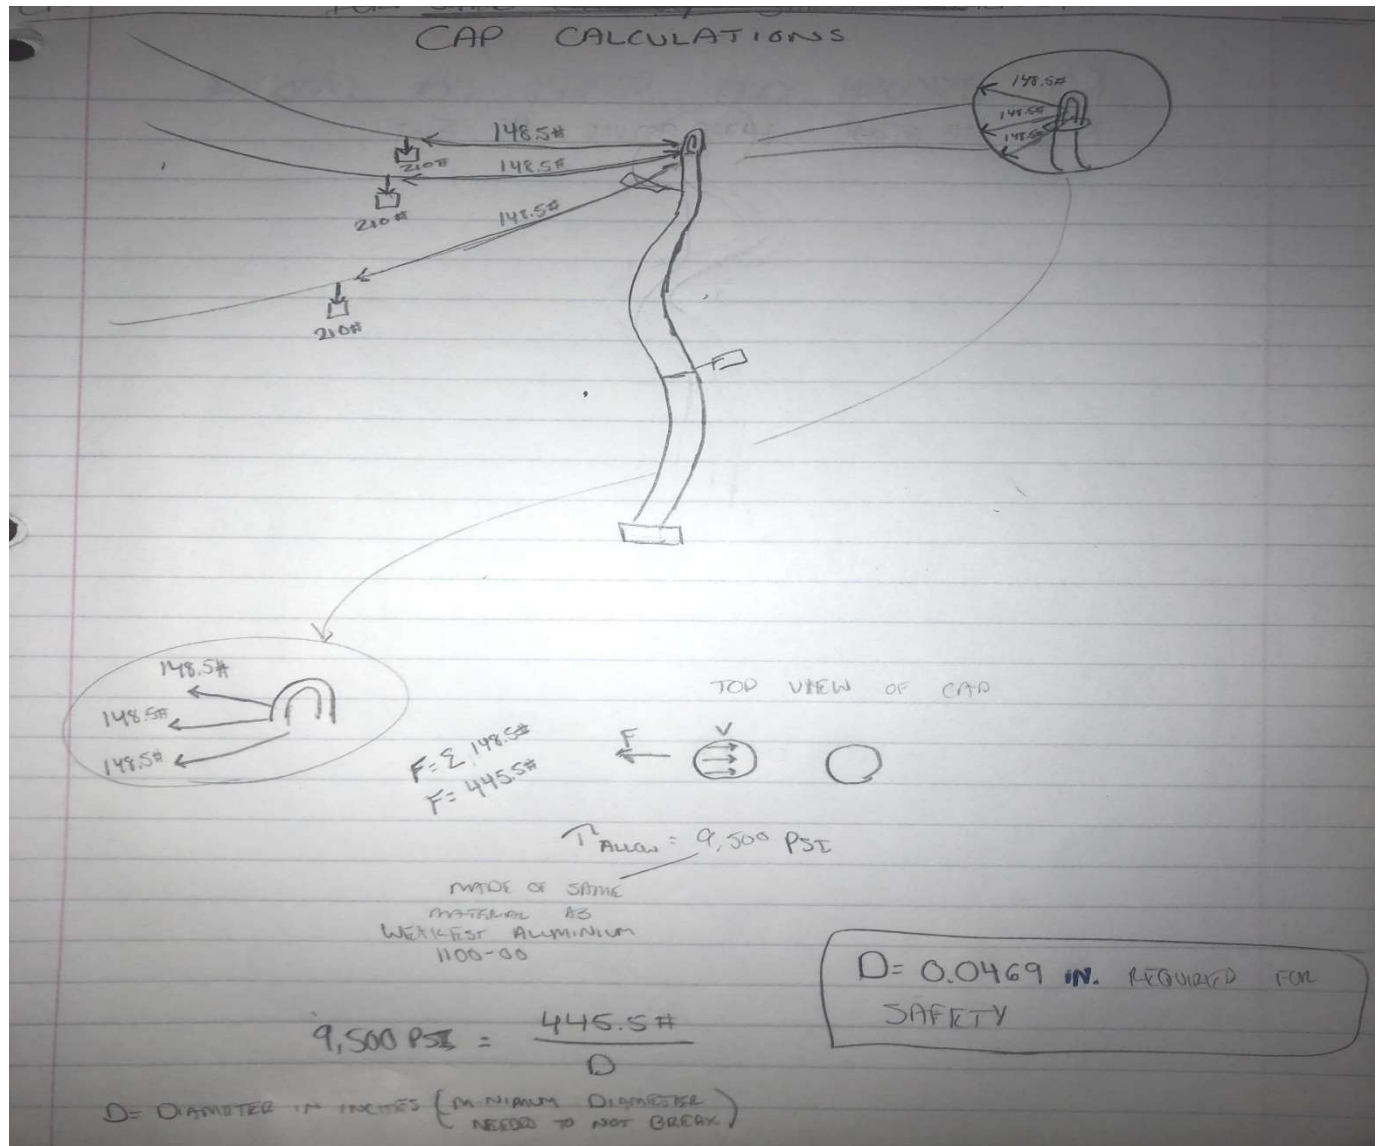 CAP CALCULATIONS
148.5#
148.5#
148.5#
148.5#
210#
148.5#
210#
148.5#
210#
148.5#
148.5#
148.5#
TOP VIEW OF CAP
F = Σ 148.5#
F = 445.5#
F
V
τ ALLOW = 9,500 PSI
MADE OF SAME
MATERIAL AS
WEAKEST ALUMINIUM
1100-00
D = 0.0469 IN. REQUIRED FOR
SAFETY
9,500 PSI = 445.5#
D
D = DIAMETER IN INCHES (MINIMUM DIAMETER
NEEDED TO NOT BREAK)